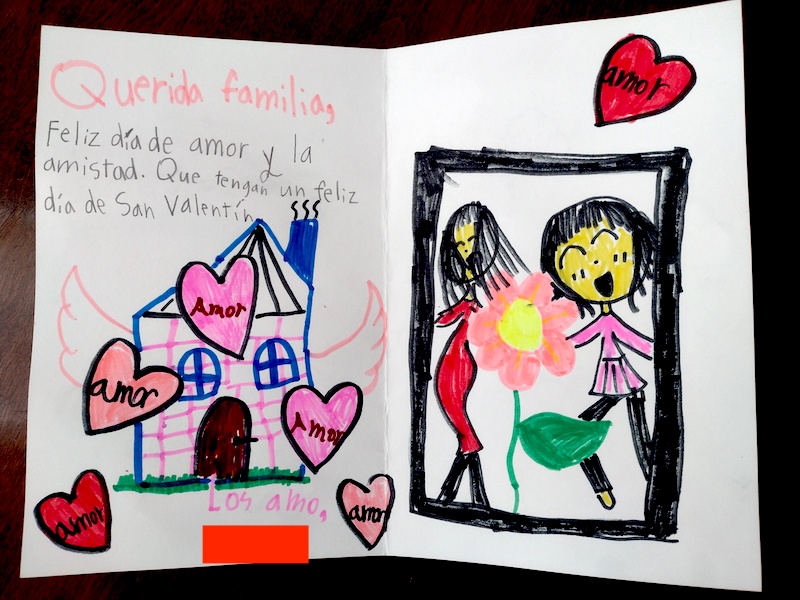 Querida familia,
Feliz día de amor y la
amistad. Que tengan un feliz
día de San Valentín
Amor
amor
Amor
Los amo,
amor
amor
amor